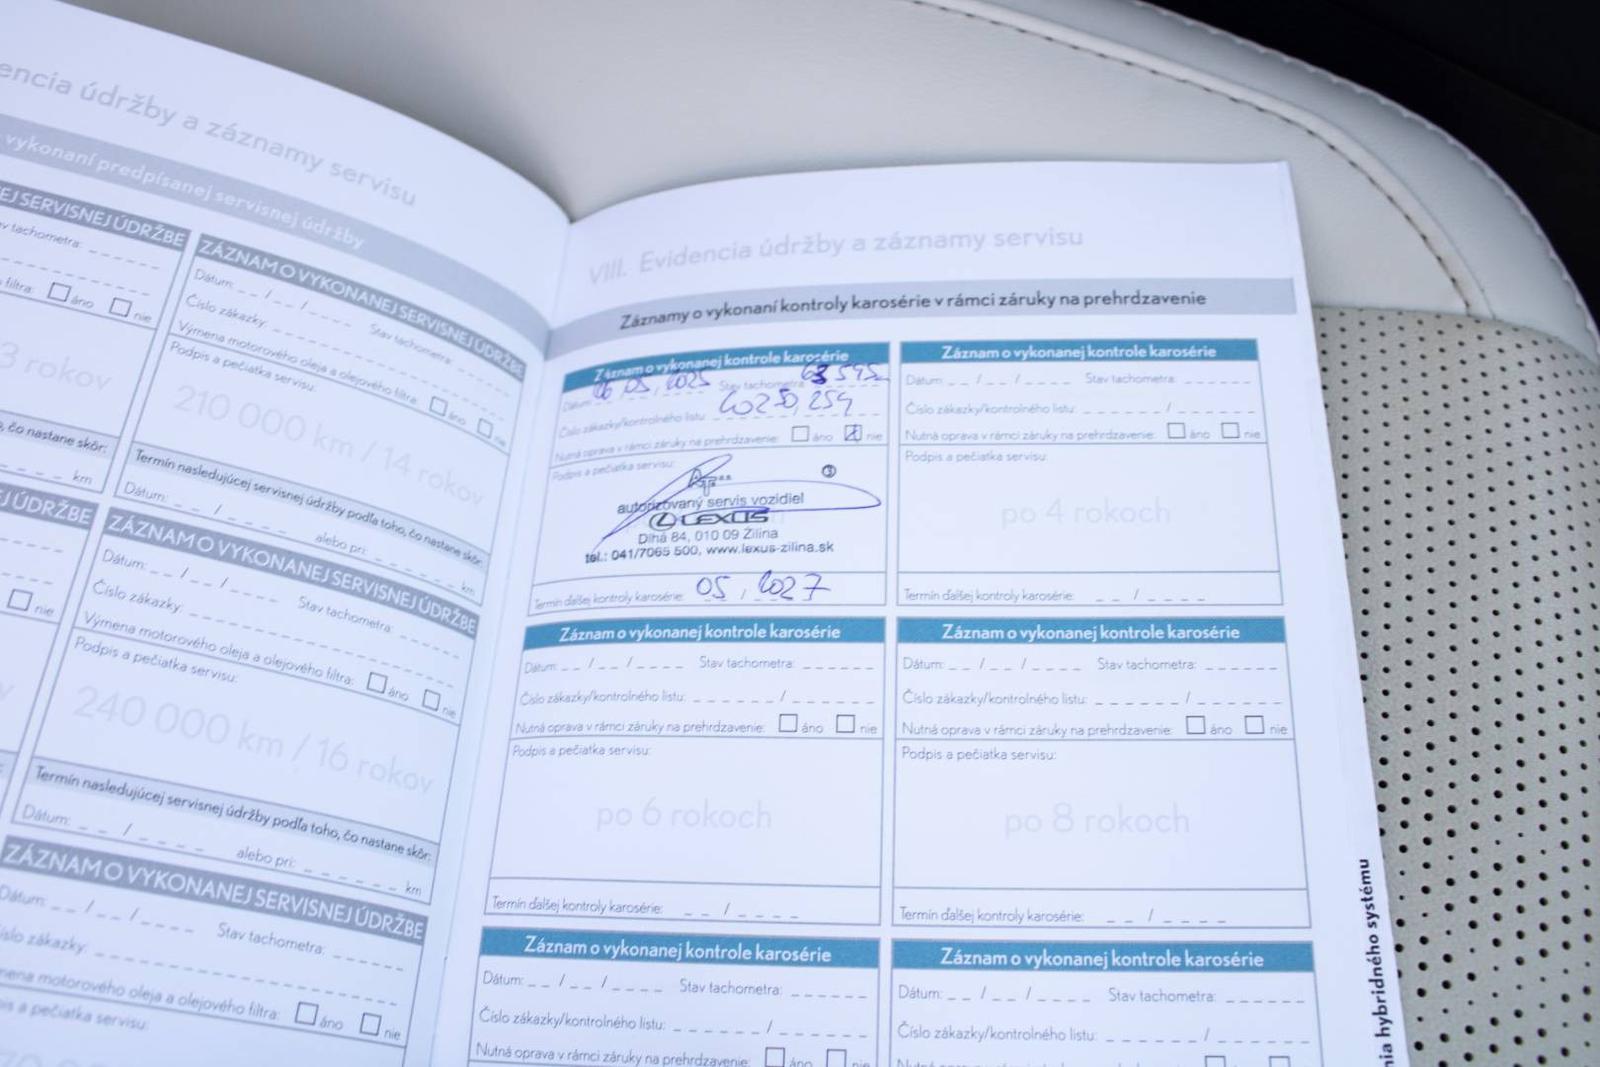 encia údržby a záznamy servisu
vykonaní predpísanej servisnej údržby
EJ SERVISNEJ ÚDRŽBE
tachometra:
filtra: áno nie
3 rokov
čo nastane skôr:
km
J ÚDRŽBE
nie
ZÁZNAM O VYKONANEJ SERVISNEJ ÚDRŽBE
Dátum: _ _ / _ _ / _ _ _ _ Stav tachometra:
Číslo zákazky:
Výmena motorového oleja a olejového filtra: áno nie
Podpis a pečiatka servisu:
210 000 km / 14 rokov
Termín nasledujúcej servisnej údržby podľa toho, čo nastane skôr:
Dátum: _ _ / _ _ / _ _ _ _ alebo pri: _ _ _ _ _ _ km
ZÁZNAM O VYKONANEJ SERVISNEJ ÚDRŽBE
Dátum: _ _ / _ _ / _ _ _ _ Stav tachometra:
Číslo zákazky:
Výmena motorového oleja a olejového filtra: áno nie
Podpis a pečiatka servisu:
240 000 km / 16 rokov
Termín nasledujúcej servisnej údržby podľa toho, čo nastane skôr:
Dátum: _ _ / _ _ / _ _ _ _ alebo pri: _ _ _ _ _ _ km
ZÁZNAM O VYKONANEJ SERVISNEJ ÚDRŽBE
Dátum: _ _ / _ _ / _ _ _ _ Stav tachometra:
íslo zákazky:
mena motorového oleja a olejového filtra: áno nie
is a pečiatka servisu:
VIII. Evidencia údržby a záznamy servisu
Záznamy o vykonaní kontroly karosérie v rámci záruky na prehrdzavenie
Záznam o vykonanej kontrole karosérie
Dátum: 06 / 05 / 2025 Stav tachometra: 63 545
Číslo zákazky/kontrolného listu: 20250, 254
Nutná oprava v rámci záruky na prehrdzavenie: áno nie
Podpis a pečiatka servisu:
3
autorizovaný servis vozidiel
LEXUS
Dlhá 84, 010 09 Žilina
tel.: 041/7065 500, www.lexus-zilina.sk
Termín ďalšej kontroly karosérie: 05 / 2027
Záznam o vykonanej kontrole karosérie
Dátum: _ _ / _ _ / _ _ _ _ Stav tachometra: _ _ _ _ _ _
Číslo zákazky/kontrolného listu: _ _ _ _ _ _ / _ _ _ _
Nutná oprava v rámci záruky na prehrdzavenie: áno nie
Podpis a pečiatka servisu:
po 4 rokoch
Termín ďalšej kontroly karosérie: _ _ / _ _ _ _
Záznam o vykonanej kontrole karosérie
Dátum: _ _ / _ _ / _ _ _ _ Stav tachometra: _ _ _ _ _ _
Číslo zákazky/kontrolného listu: _ _ _ _ _ _ / _ _ _ _
Nutná oprava v rámci záruky na prehrdzavenie: áno nie
Podpis a pečiatka servisu:
po 6 rokoch
Termín ďalšej kontroly karosérie: _ _ / _ _ _ _
Záznam o vykonanej kontrole karosérie
Dátum: _ _ / _ _ / _ _ _ _ Stav tachometra: _ _ _ _ _ _
Číslo zákazky/kontrolného listu: _ _ _ _ _ _ / _ _ _ _
Nutná oprava v rámci záruky na prehrdzavenie: áno nie
Podpis a pečiatka servisu:
po 8 rokoch
Termín ďalšej kontroly karosérie: _ _ / _ _ _ _
Záznam o vykonanej kontrole karosérie
Dátum: _ _ / _ _ / _ _ _ _ Stav tachometra: _ _ _ _ _ _
Číslo zákazky/kontrolného listu: _ _ _ _ _ _ / _ _ _ _
Nutná oprava v rámci záruky na prehrdzavenie: áno nie
Záznam o vykonanej kontrole karosérie
Dátum: _ _ / _ _ / _ _ _ _ Stav tachometra: _ _ _ _ _ _
Číslo zákazky/kontrolného listu: _ _ _ _ _ _ / _ _ _ _
nia hybridného systému